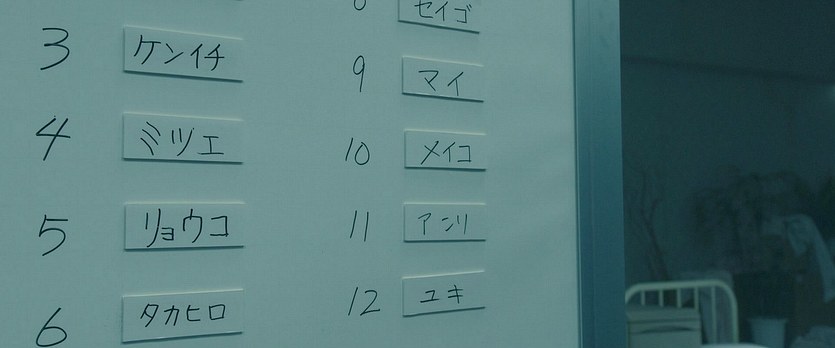 3 ケンイチ
4 ミツエ
5 リョウコ
6 タカヒロ
セイゴ
9 マイ
10 メイコ
11 アンリ
12 ユキ